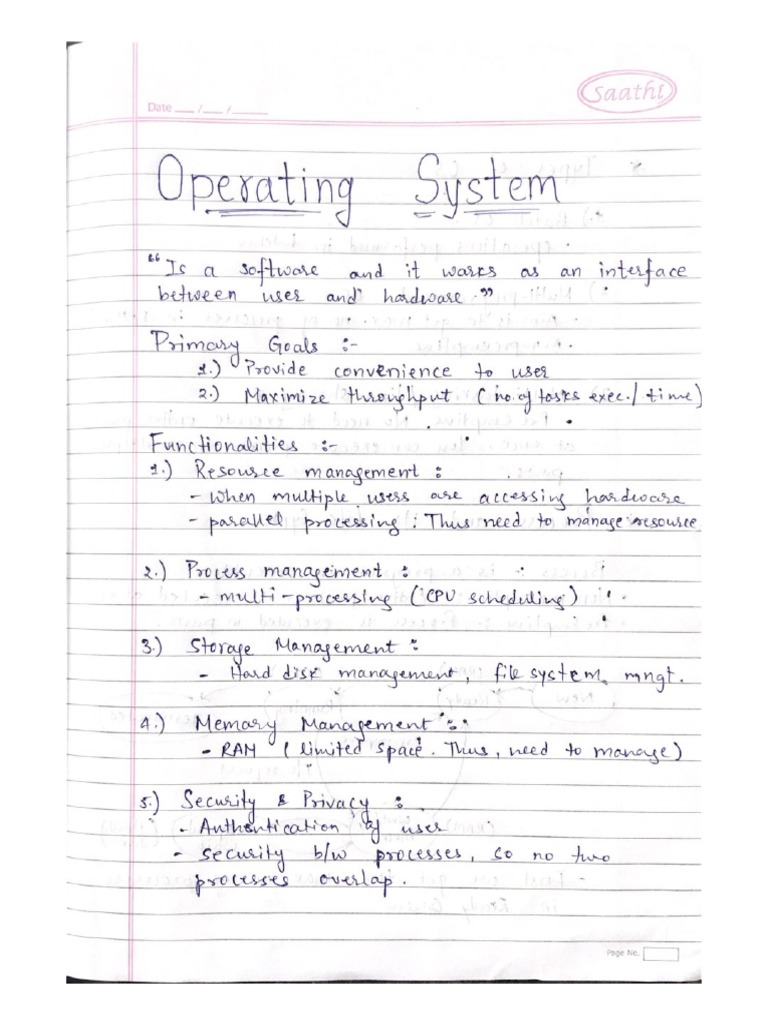 Saathi
Date __ /__ /____
Operating System
"Is a software and it works as an interface
between user and hardware."
Primary Goals :-
1.) Provide convenience to user
2.) Maximize throughput (no. of tasks exec./time)
Functionalities :-
1.) Resource management :
- when multiple users are accessing hardware
- parallel processing; Thus need to manage resource
2.) Process management :
- multi-processing (CPU scheduling)
3.) Storage Management :
- Hard disk management, file system mngt.
4.) Memory Management :
- RAM (limited space. Thus, need to manage)
5.) Security & Privacy :
- Authentication of user
- security b/w processes, so no two
processes overlap.
Page No.